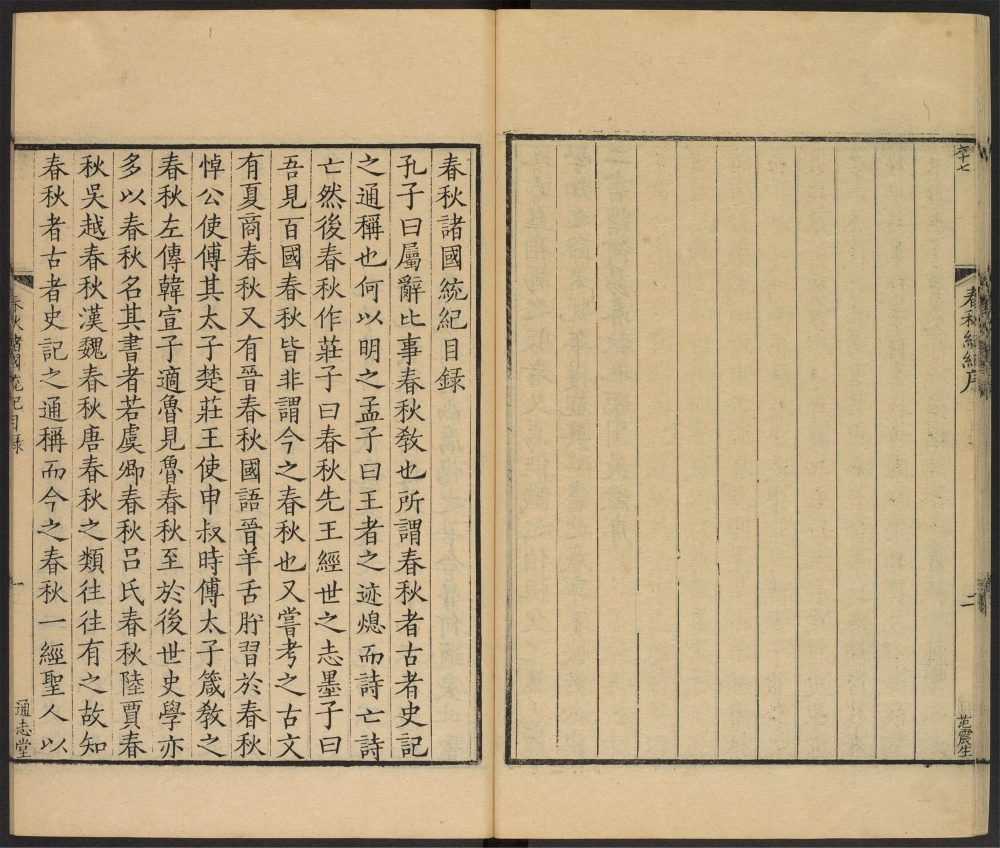 六十七
春秋經解序
二
范震生
春秋諸國統紀目録
孔子曰屬辭比事春秋敎也所謂春秋者古者史記
之通稱也何以明之孟子曰王者之迹熄而詩亡詩
亡然後春秋作莊子曰春秋先王經世之志墨子曰
吾見百國春秋皆非謂今之春秋也又嘗考之古文
有夏商春秋又有晉春秋國語晉羊舌肸習於春秋
悼公使傅其太子楚莊王使申叔時傅太子箴敎之
春秋左傳韓宣子適魯見魯春秋至於後世史學亦
多以春秋名其書者若虞卿春秋吕氏春秋陸賈春
秋吳越春秋漢魏春秋唐春秋之類往往有之故知
春秋者古者史記之通稱而今之春秋一經聖人以
春秋諸國統紀目録
一
通志堂